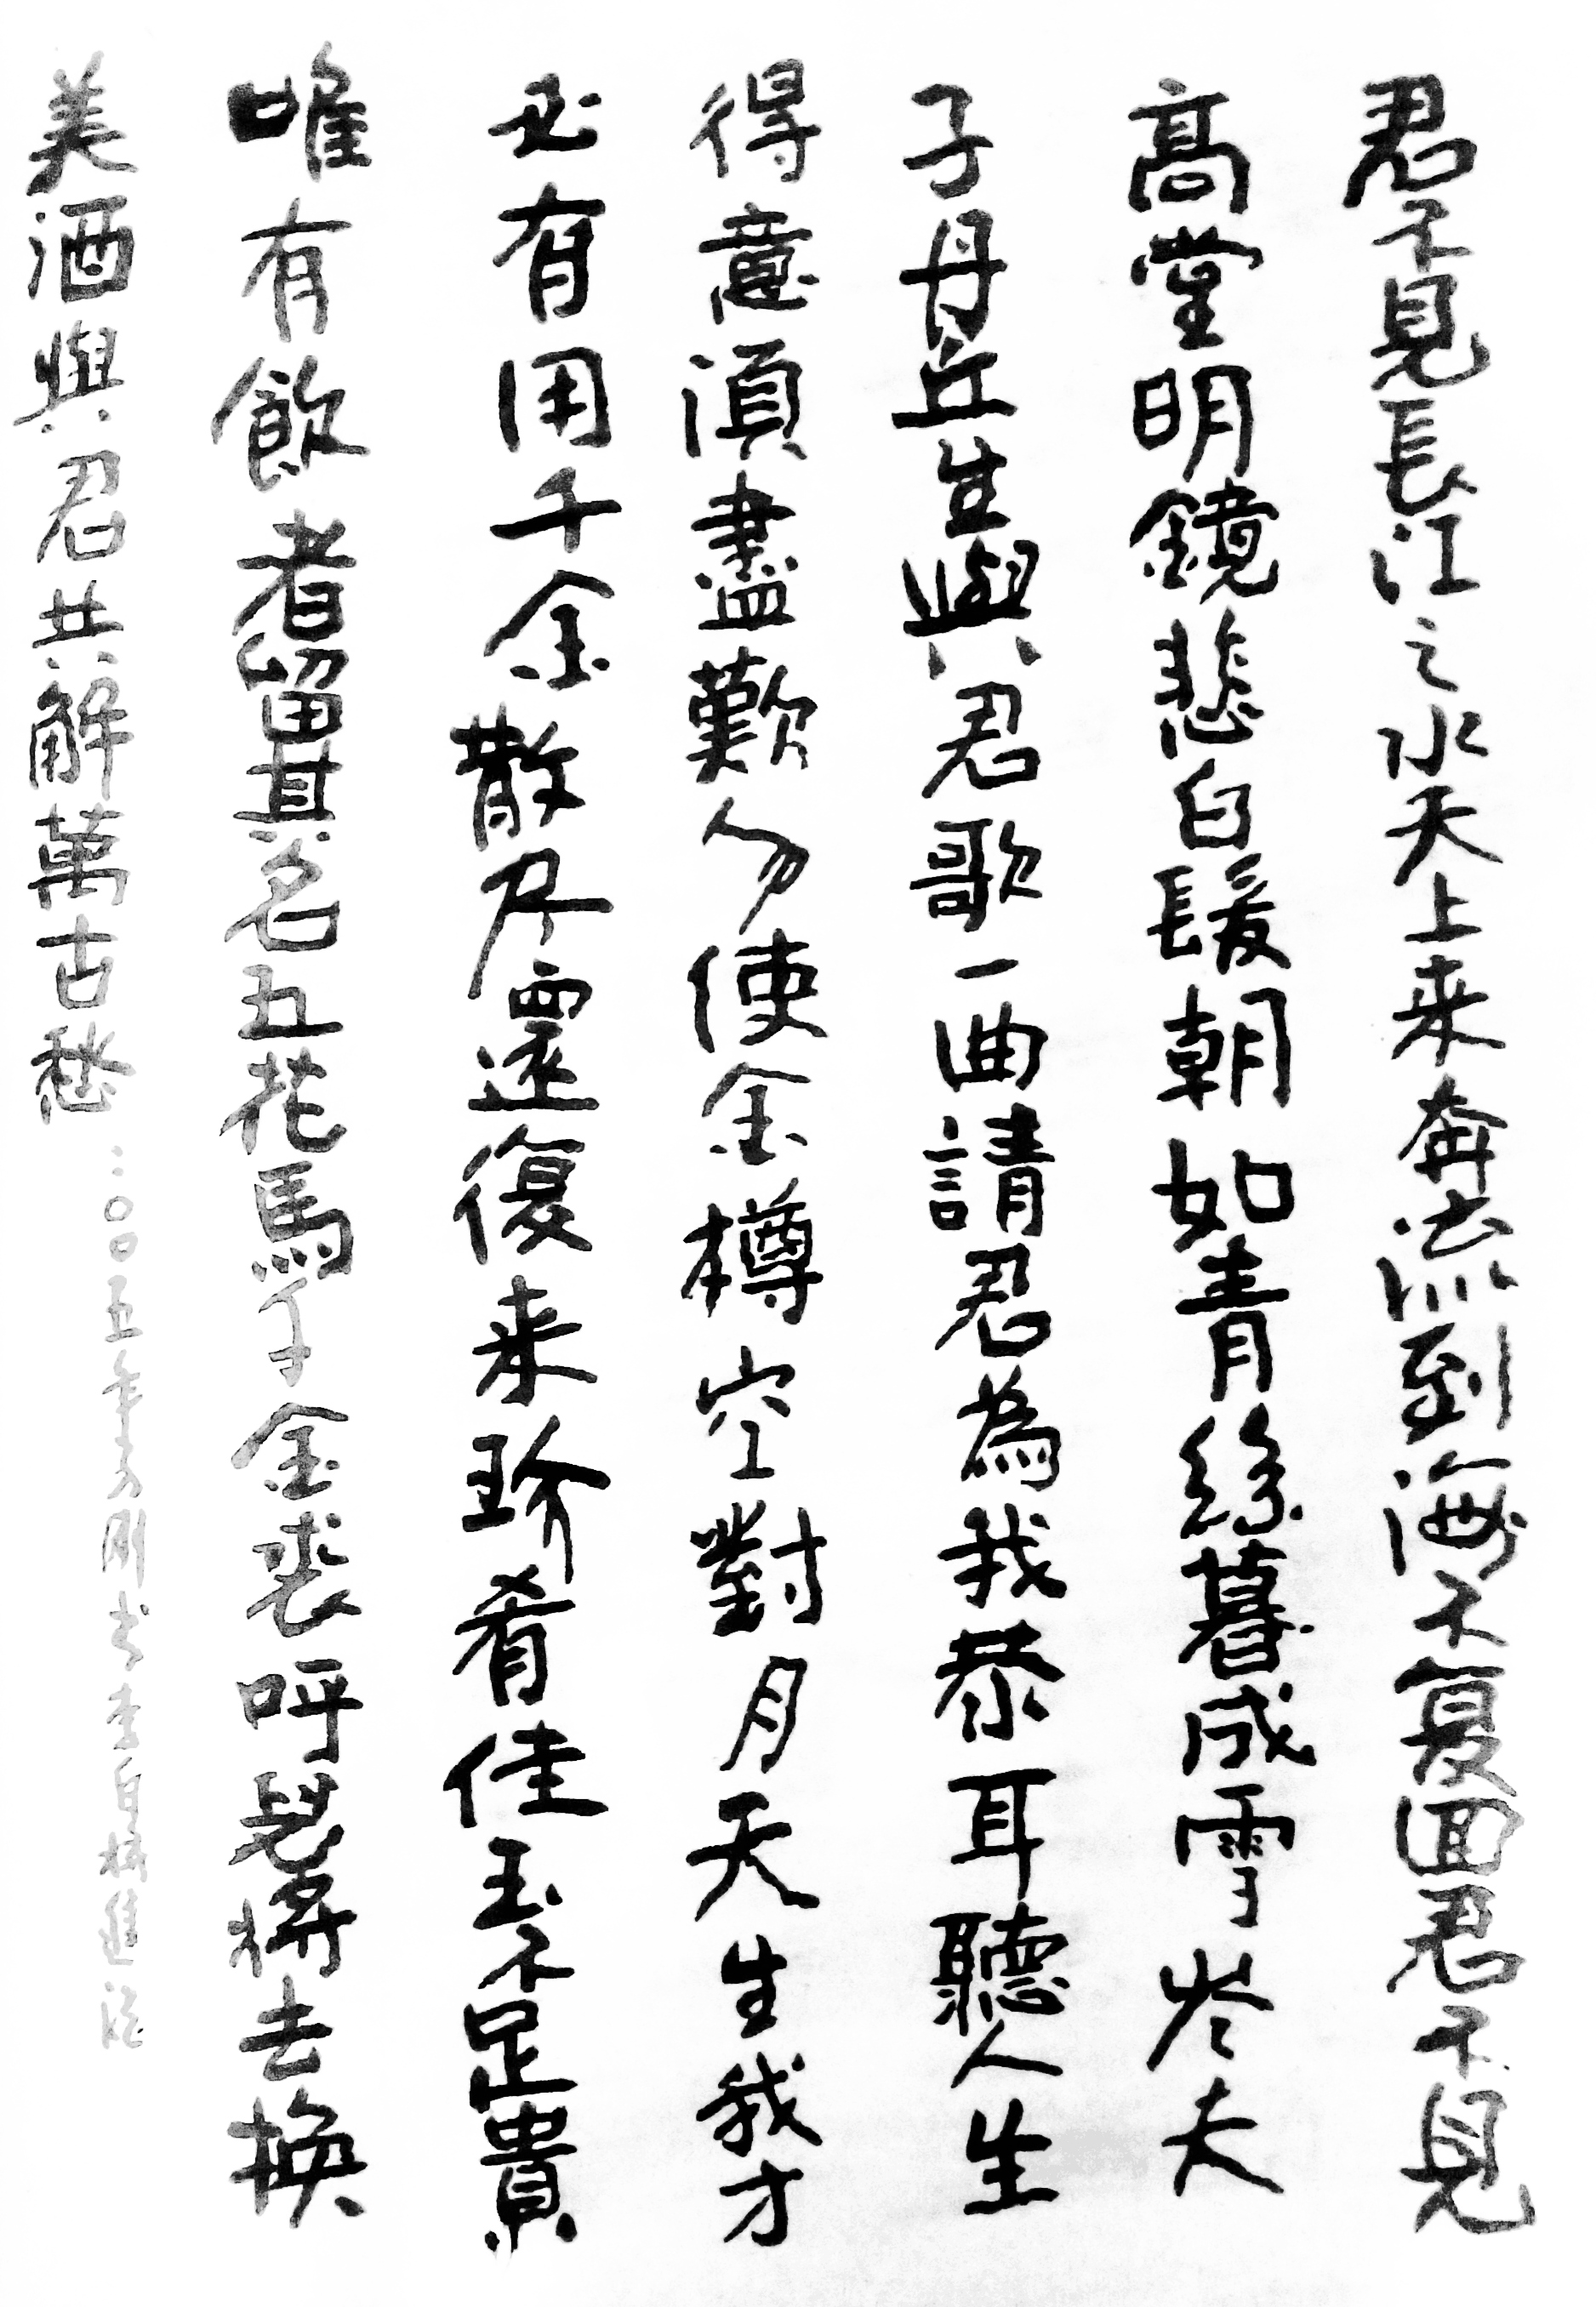 君不見長江之水天上来奔流到海不复回君不見
高堂明鏡悲白髮朝如青絲暮成雪岑夫
子丹丘生與君歌一曲請君為我恭耳聽人生
得意須盡歡勿使金樽空對月天生我才
必有用千金散尽還復来珍肴佳玉不足貴
唯有飲者留其名五花馬千金裘呼兒將去換
美酒與君共解萬古愁
二〇〇五年 剛书李白将進酒